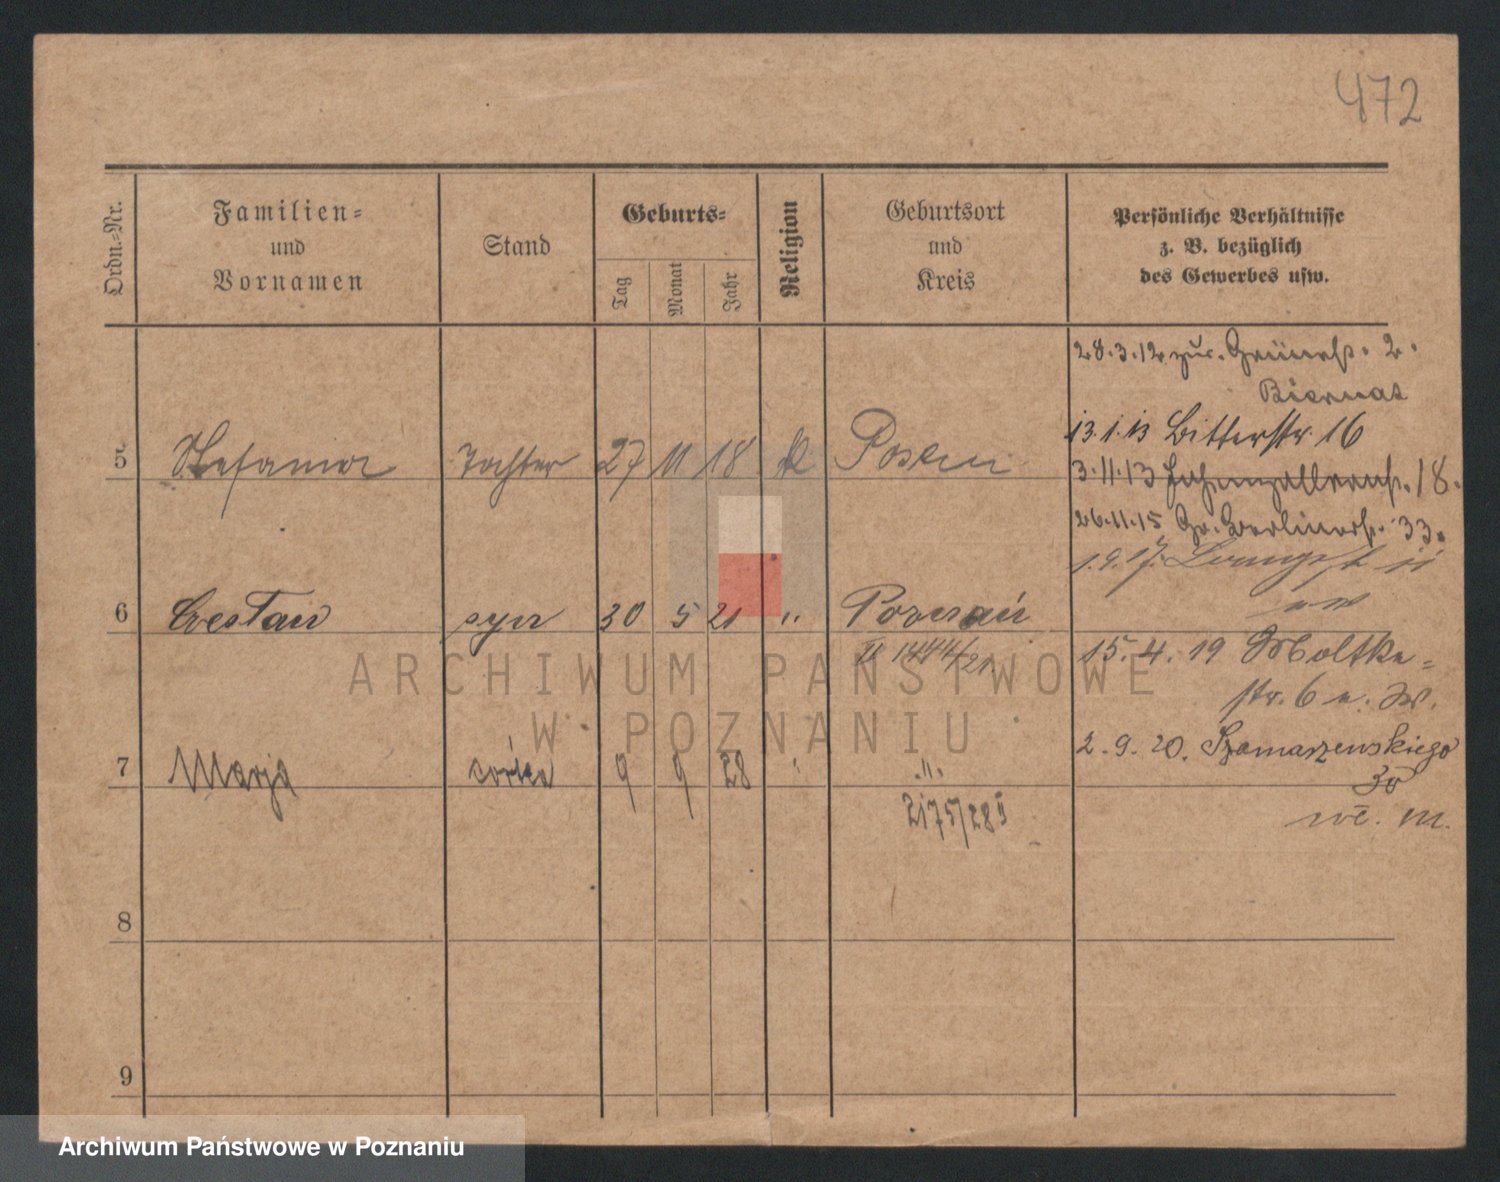 472
Ordn.-Nr.
Familien-
und
Vornamen
Stand
Geburts-
Tag
Monat
Jahr
Religion
Geburtsort
und
Kreis
Persönliche Verhältnisse
z. B. bezüglich
des Gewerbes usw.
28.3.12 zur. Grünestr. 2.
Biernat
13.1.13 Bitterstr. 16
5 Stefania Tochter 27 11 18 k Posen
3.11.13 18.
26.11.15 Gr. Berlinerstr. 33.
1.9.17.
6 Czesław syn 30 5 21 " Poznań
II 1444/21
15.4.19 Moltke-
str. 6
2.9.20. Szamarzewskiego
30
7 Marja córka 9 9 28 " "
2175/28 I
8
9
ARCHIWUM PAŃSTWOWE
W POZNANIU
Archiwum Państwowe w Poznaniu